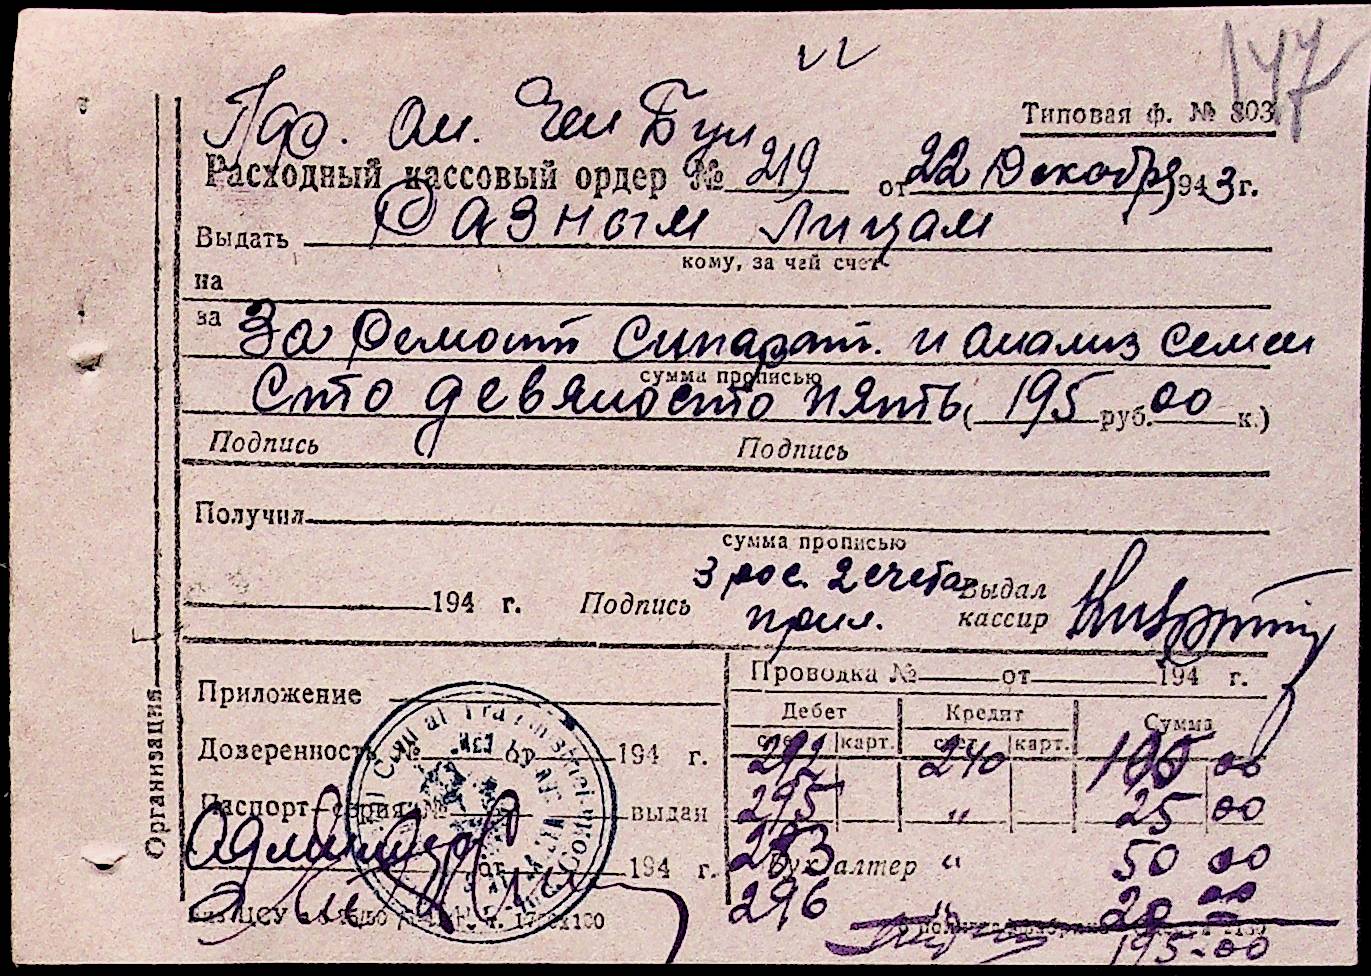 147
Типовая ф. № 803
Расходный кассовый ордер № 219 от 22 Декабря 1943 г.
Выдать Разным лицам
кому, за чей счет
на
за За ремонт сипарат. и анализ семен
сумма прописью
Сто девяносто пять (195 руб. 00 к.)
Подпись Подпись
Получил
сумма прописью
3 рос. 2 счета
194 г. Подпись прил. Выдал кассир
Приложение
Проводка № от 194 г.
Дебет Кредит Сумма
счет карт. счет карт.
Доверенность № 194 г.
292 240 100 00
Паспорт—серия № выдан
295 " 25 00
от 194 г.
293 Бухгалтер " 50 00
296 " 20 00
195-00
Организация